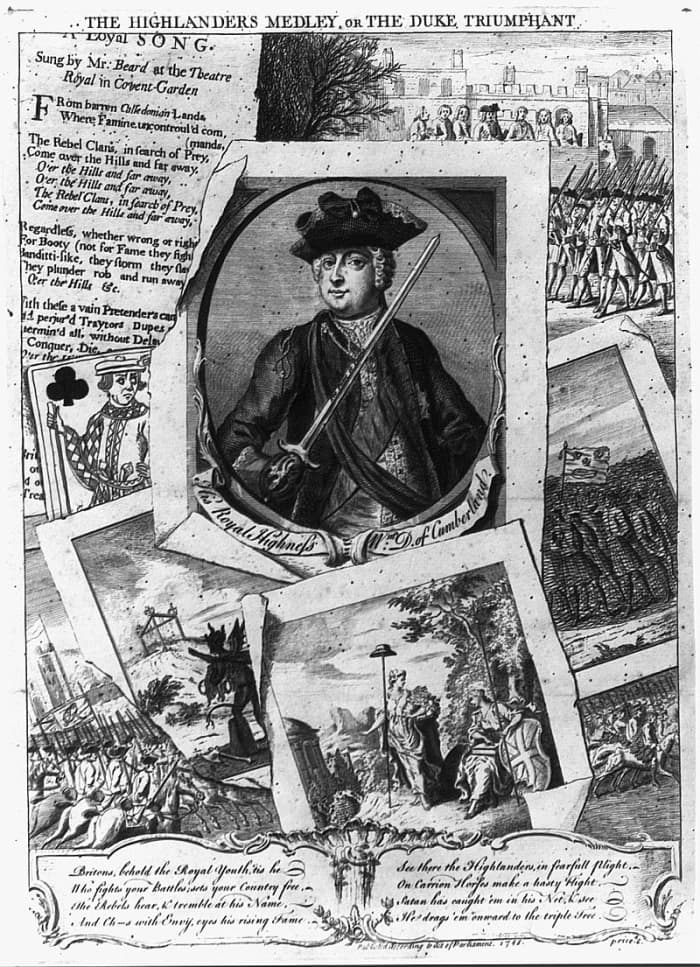 THE HIGHLANDERS MEDLEY, or THE DUKE TRIUMPHANT
A Loyal SONG.
Sung by Mr: Beard at the Theatre
Royal in Covent-Garden
FRom barren Calledonian Lands,
Where Famine uncontroul'd com,
(mands,
The Rebel Clans, in search of Prey,
Come over the Hills and far away.
O'er the Hills and far away,
O'er the Hills and far away,
The Rebel Clans, in search of Prey,
Come over the Hills and far away,
Regardless, whether wrong or righ
For Booty (not for Fame they figh
Banditti-like, they storm they sla
They plunder rob and run away
O'er the Hills &c.
ith these a vain Pretender's cam
d perjur'd Traytors Dupes
termin'd all, without Dela
Conquer, Die,
O'er the
His Royal Highness Wm. D. of Cumberland
Britons, behold the Royal Youth, 'tis he
Who fights your Battles, sets your Country free
The Rebels hear, & tremble at his Name,
And Ch--s with Envy, eyes his rising Fame
See there the Highlanders, in fearfull plight
On Carrion Horses make a hasty flight
Satan has caught 'em in his Net, & see
He drags 'em onward to the triple Tree
Publish'd according to Act of Parliament. 1746.
price